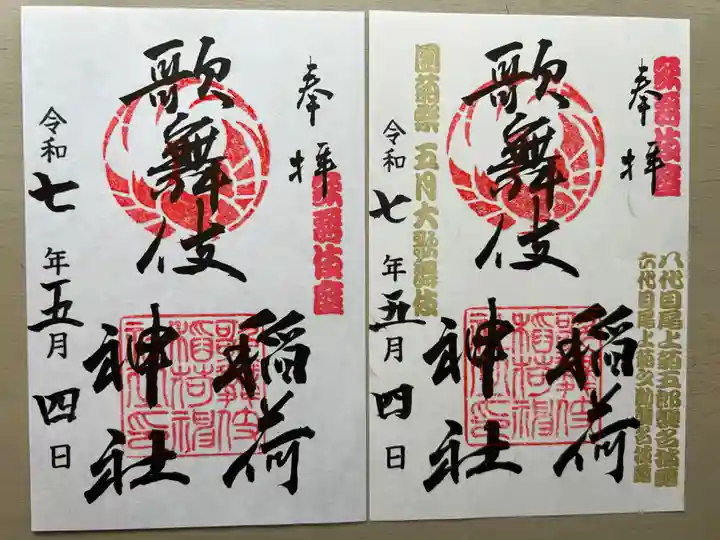 奉拝
歌舞伎座
歌舞伎
稲荷
神社
令和七年五月四日
歌舞伎座
奉拝
歌舞伎
稲荷
神社
團菊祭 五月大歌舞伎
令和七年五月四日
八代目尾上菊五郎襲名披露
六代目尾上菊之助襲名披露